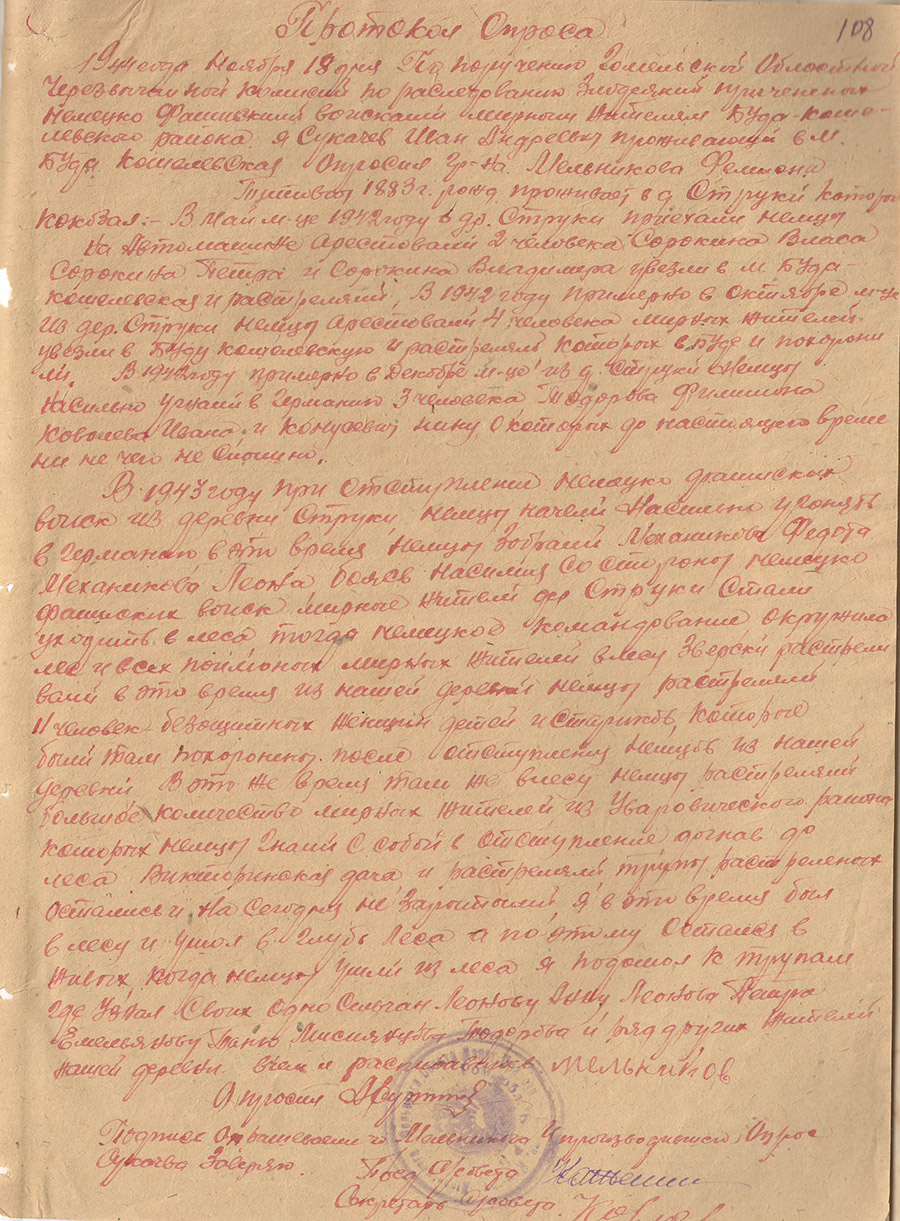 108
Протокол Опроса
1944 года Ноября 18 дня По поручению Гомельской Областной
Черезвычайной комисии по раследованию Злодеяний причененых
Немецко Фашиский войсками мирным жителям Буда-коше-
левского района я Сукачев Иван Андреевич проживающий в м.
Буда Кошелевская Опросил гр-на. Мельникова Филимона
Титовича 1883 г. рожд проживает в д Струки которы
Кокозал:- В Май м-це 1942 году в др. Струки приехали немцы
На Автомашине Арестовали 2 человека Сорокина Власа
Сорокина Петра и Сорокина Владимира увезли в м. Буда-
кошелевская и растреляли, В 1942 году примерно в октябре м-це
из дер. Струки немцы арестовали 4 человека мирных жителей
увезли в Буду кошелевскую и растреляль которых в Буде и похорони
ли. В 1942 году примерно в Декабре м-це из д. Струки Немцы
насильно угнали в Германию 3 человека Тодорова Филимона
Коволева Ивана и Нину, О которых до настоящего време
ни не чего не Слышно.
В 1943 году при Отступлении Немецко фашиских
войск из деревни Струки, немцы начели Насильно угонять
в Германию в это время Немцы Зобрали Механикова Федота
Механикова Леона боясь насилия Со стороны немецко
фашиских войск мирные жители др Струки Стали
уходить в леса тогда немецкое командование окружило
лес и всех поймоных мирных жителей в лесу Зверски растрели
вали в это время из нашей деревни немцы растреляли
11 человек безощитных женщин детей и Стариков, которые
были там похоронены после отступления немцев из нашей
деревни В это же время там же в лесу немцы растреляли
большое количество мирных жителей из Уваровического района
которых немцы гнали с собой в отступление догнав до
леса Викторинская дача и растреляли трупы растреленых
остались и на сегодня не Зарытыми я в это время был
в лесу и ушол в глубь леса а по этому остался в
живых, когда немцы ушли из леса я подошол к трупам
где узнал Своих одно Сельчан Леонову Анну Леонова Петра
Емельянову Таню Тодорова и ряд других жителей
нашей деревни в чем и расписываюсь Мельников
Опросил
Подписи Опрашеваемого Мельникова и производившего Опрос
Сукачева Заверяю.
Пред С/Совета
Секретарь С/Совета